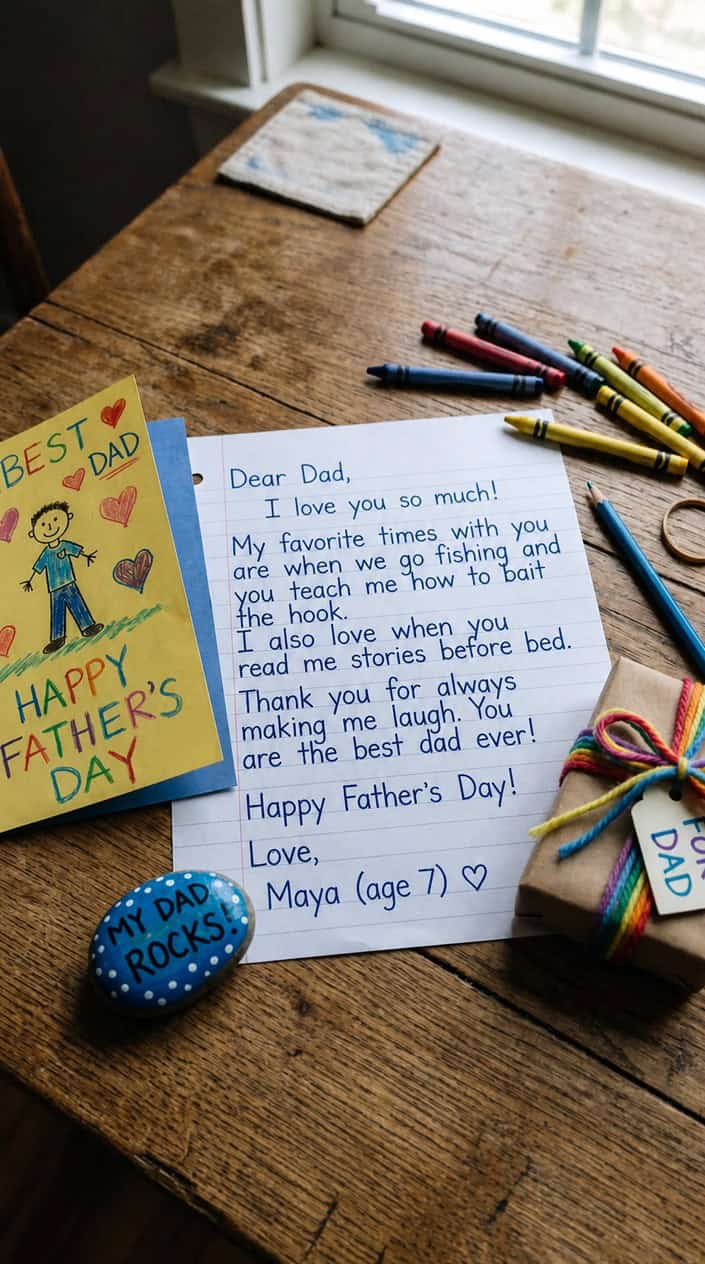 BEST
DAD
HAPPY
FATHER'S
DAY
Dear Dad,
I love you so much!
My favorite times with you
are when we go fishing and
you teach me how to bait
the hook.
I also love when you
read me stories before bed.
Thank you for always
making me laugh. You
are the best dad ever!
Happy Father's Day!
Love,
Maya (age 7) ♡
MY DAD
ROCKS!
FOR
DAD